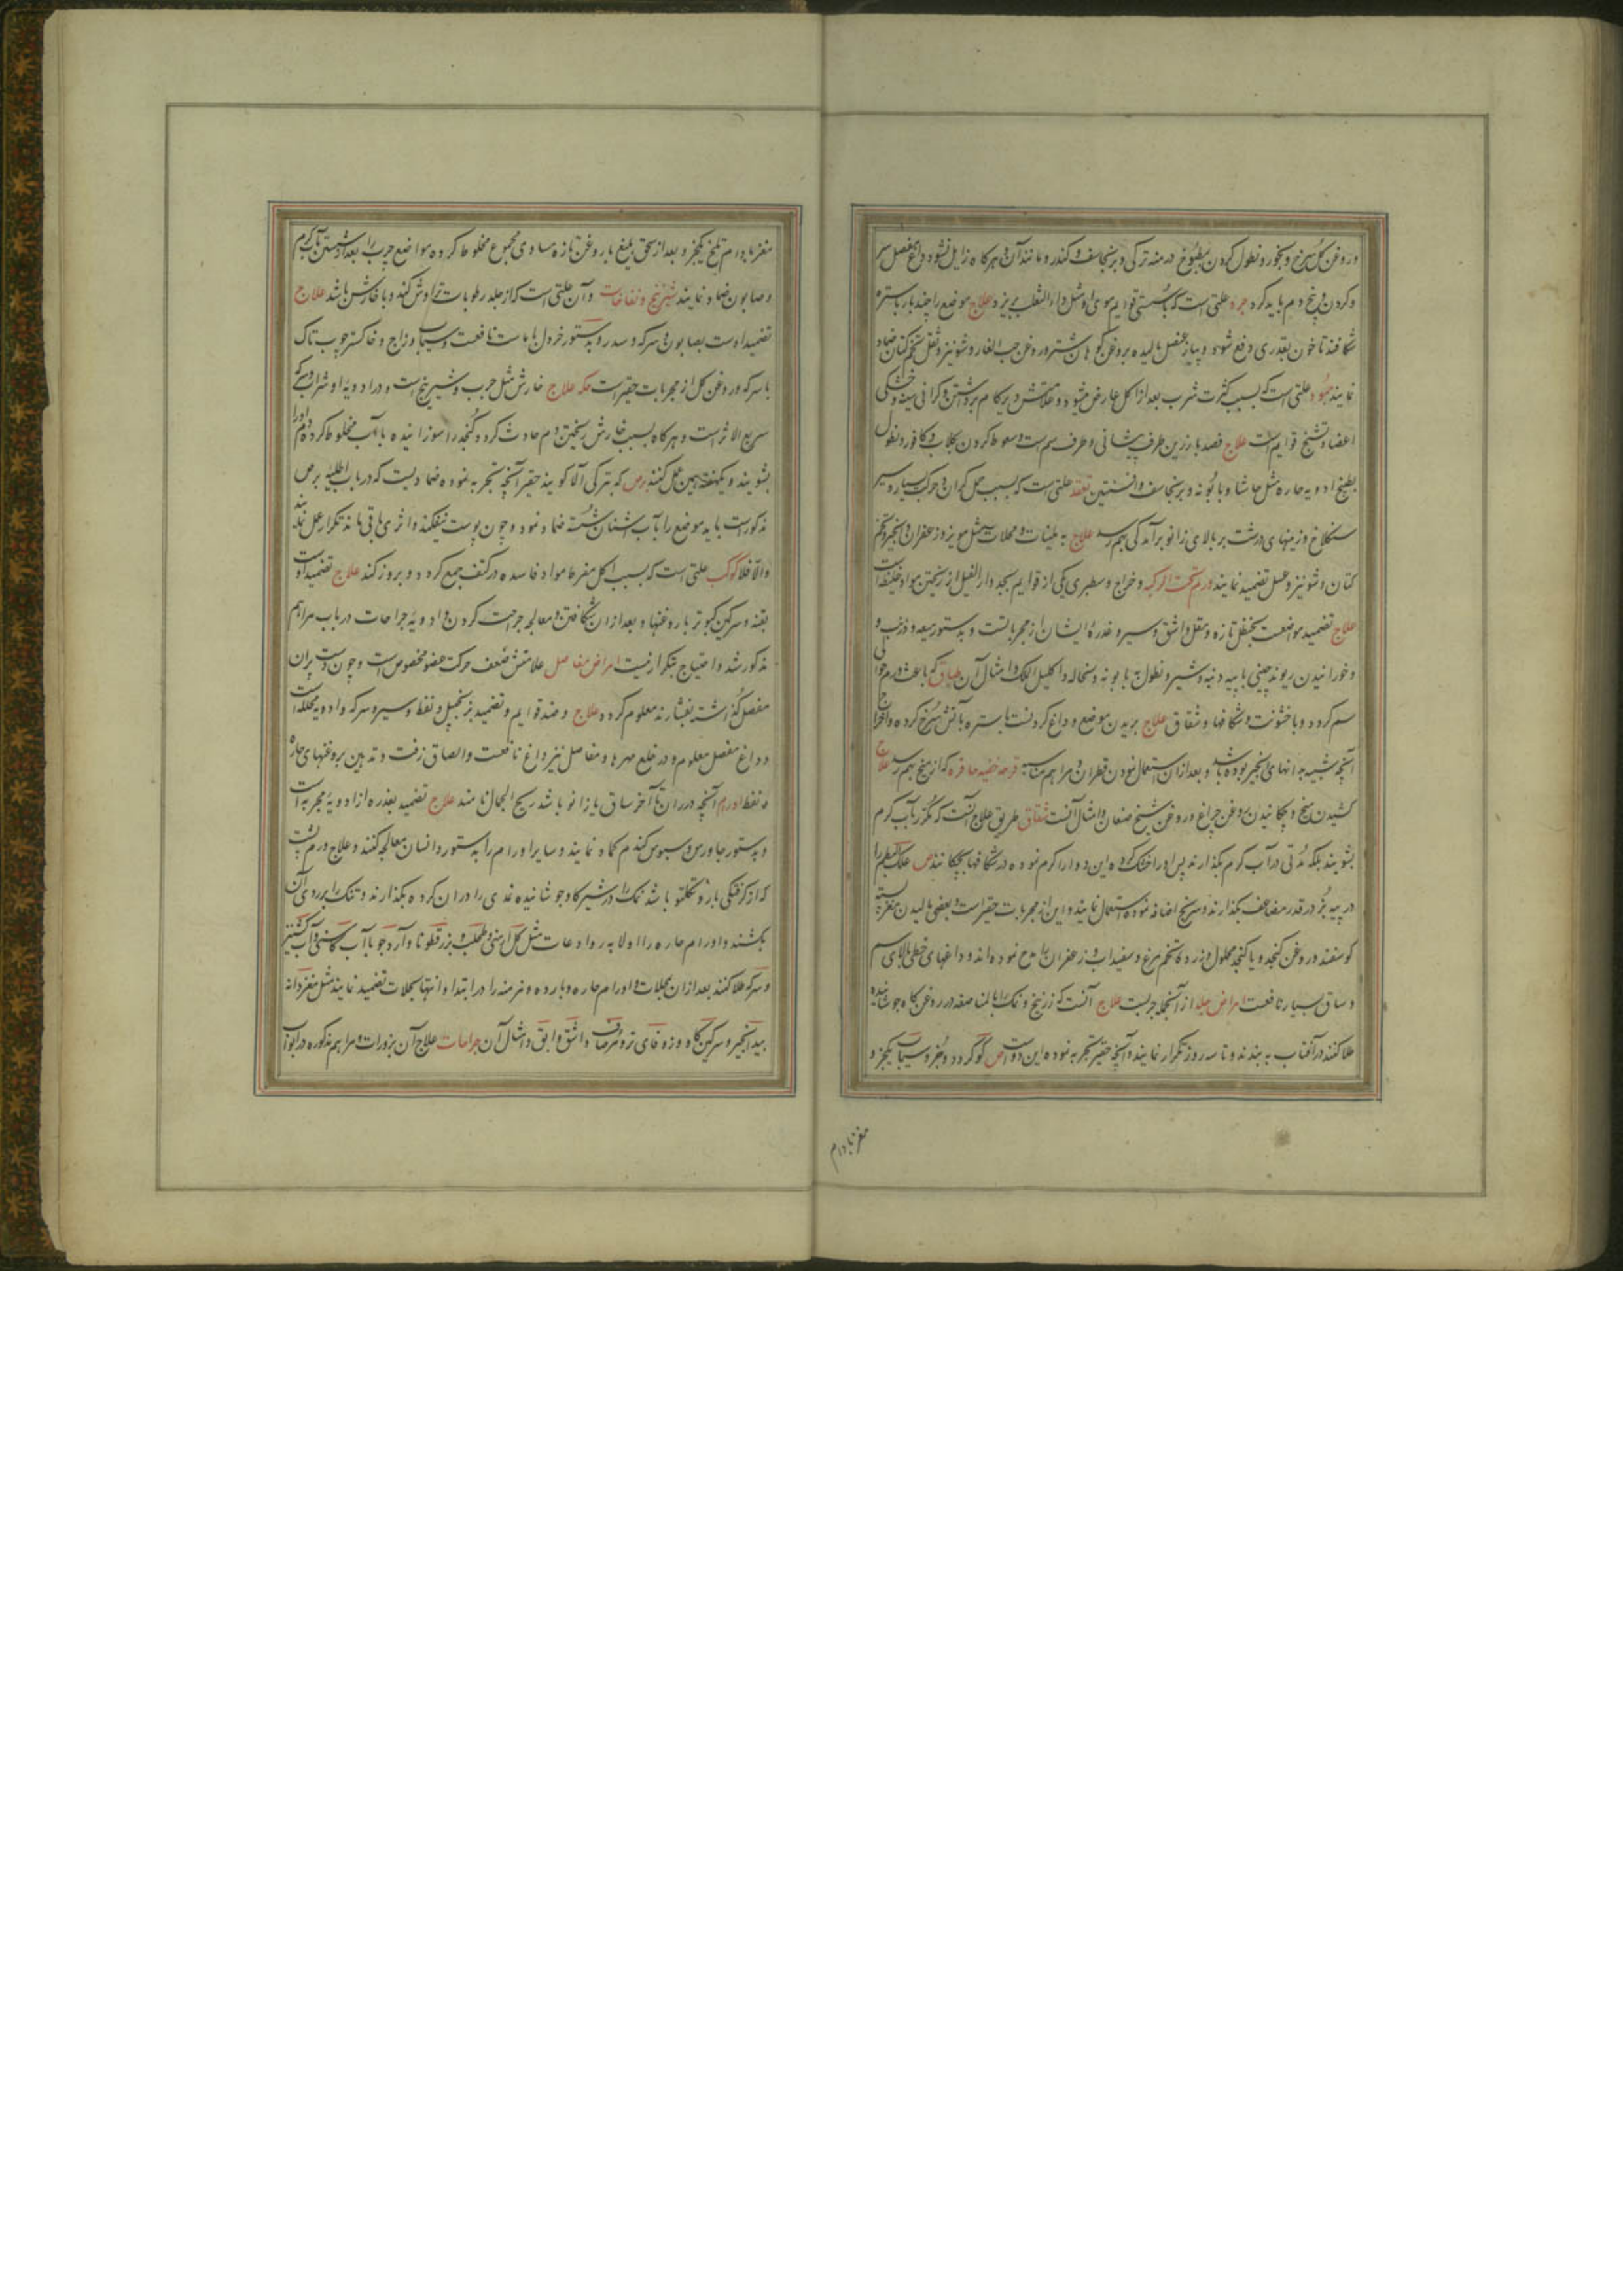 و روغن گل سرخ و بخور و نطول کردن بمطبوخ درمنه ترکی و برنجاسف و کندر و مانند آن و هرگاه زایل نشود داغ مفصل سر
و گردن و بیخ دم باید کرد جرد علتی است که بستی قوایم موی او مثل داء الثعلب بریزد علاج موضع را چند بار باستره
شکافند تا خون بقدری دفع شود و پیاز عنصل مالیده بروغن کوهان شتر و روغن حب الغار و شونیز و ثفل تخم کتان ضماد
نمایند علتی است که بسبب کثرت شرب بعد از اکل عارض میشود و علامتش دیر کام برداشتن و گرانی سینه و خشکی
اعضا و تشنج قوایم است علاج فصد بازرین طرف پیشانی و طرف سم است و سعوط کردن بگلاب و کافور و نطول
بطبیخ ادویه حاره مثل حاشا و بابونه و برنجاسف و افسنتین علتی است که بسبب حمل گران و حرکت بسیار و سیر
سنگلاخ و زمینهای درشت بر بالای زانو برآمدگی بهم رسد علاج به ملینات و محللات مثل مویز و زعفران و انجیر و تخم
کتان و شونیز و عسل تضمید نمایند ورم تحت الرکبه و خراج و سطبری یکی از قوایم بحد داء الفیل از ریختن مواد غلیظه است
علاج تضمید مواضعست بحنظل تازه و مقل و اشق و سیر و غدره ایشان از مجرباتست و بدستور میعه و ذنب و
و خورانیدن ریوند چینی با پیه دنبه و شیر و نطول با بونه و نخاله و اکلیل الملک و امثال آن که باعث ورم حوالی
سم گردد و با خشونت و شکافها و شقاق علاج بریدن موضع و داغ کردنست باستره بآتش سرخ کرده و اخراج
آنچه شبیه بدانهای انجیر بوده باشد و بعد از آن استعمال نمودن قطران و مراهم مناسبه قرحه خفیه حافر که از میخ بهم رسد علاج
کشیدن میخ و چکانیدن روغن چراغ و روغن شیخ صنعان و امثال آنست شقاق طریق علاج آنست که مکرر بآب گرم
بشویند بلکه مدتی در آب گرم بگذارند پس او را خشک کرده این دوا را گرم نموده در شکافها بچکانند ص علک البطم را
در پیه بز در قدر مضاعف بگذارند و سرنج اضافه نموده استعمال نمایند و این از مجربات حقیر است و بعضی مالیدن مغز پسته
گوسفند در روغن کنجد و یا کنجد محلول و زرده تخم مرغ و سفیداب و زعفران را مدح نموده اند و داغهای خطی بالای سم
و ساق بسیار نافعست امراض جلد از آنجمله جربست علاج آنست که زرنیخ و نمک را بالمناصفه در روغن گاو جوشانیده
طلا کنند در آفتاب به بندند و تا سه روز تکرار نمایند و آنچه حقیر تجربه نموده این دواست ص گوگرد دو جزو سیماب یکجزو
مغز بادام
مغز بادام تلخ یکجزو بعد از سحق بلیغ با روغن تازه مساوی مجموع مخلوط کرده مواضع جرب را بعد از شستن بآب گرم
و صابون ضماد نمایند شیرینج و نفاخات و آن علتی است که از جلد رطوبات تراوش کند و با خارش باشد علاج
تضمید اوست بصابون و سرکه و سدر و بدستور خردل با ماست نافعست و سیماب و زاج و خاکستر چوب تاک
با سرکه و روغن گل از مجربات حقیر است حکه علاج خارش مثل جرب و شیرینج است و در ادویه او شراب و سرکه
سریع الاثر است و هرگاه بسبب خارش ریختن دم حادث گردد کنجد را سوزانیده با آب مخلوط کرده دم او را
بشویند و یکهفته همین عمل کنند برص که بترکی آلا گویند حقیر آنچه تجربه نموده ضمادیست که در باب اطلیه برص
مذکور است باید موضع را بآب اشنان شسته ضماد نمود و چون پوست بیفکند و اثری باقی ماند تکرار عمل نمایند
والا فلا علتی است که بسبب اکل مفرط مواد فاسده در کتف جمع گردد و بروز کند علاج تضمید اوست
و سرکین کبوتر با روغنها و بعد از آن شکافتن و معالجه جراحت کردن و ادویه جراحات در باب مراهم
مذکور شد و احتیاج بتکرار نیست امراض مفاصل علامتش ضعف حرکت عضو مخصوص است و چون دست بر آن
مفصل گذاشته بفشارند معلوم گردد علاج و ضد قوایم و تضمید بزنجبیل و نفط و سیر و سرکه و ادویه محلله است
و داغ مفصل معلوم و در خلع مهره ها و مفاصل نیز داغ نافعست و الصاق زفت و تدهین بروغنهای حاره
و نفط اورام آنچه در ران تا آخر ساق یا زانو باشد ریح الجمال نامند علاج تضمید بغدره از ادویه مجربه است
و بدستور جاورس و سبوس گندم کماد نمایند و سایر اورام را بدستور انسان معالجه کنند و علاج ورم پشت
که از گرفتگی بار و تکلتو باشد نمک را در شیر گاو جوشانیده نمدی را در آن کرده بگذارند و تنگ را بر روی آن
بکشند و اورام حاره را اولا به رواد عات مثل گل ارمنی و طحلب و بزرقطونا و آرد جو با آب کاسنی و آب گشنیز
و سرکه طلا کنند بعد از آن بمحللات و اورام حاره و بارده و مزمنه را در ابتدا و انتها بمحللات تضمید نمایند مثل مغز دانه
بید انجیر و سرگین گاو و زوفای تر و اشق و ابق و امثال آن جراحات علاج آن بزورات و مراهم مذکوره در ابواب